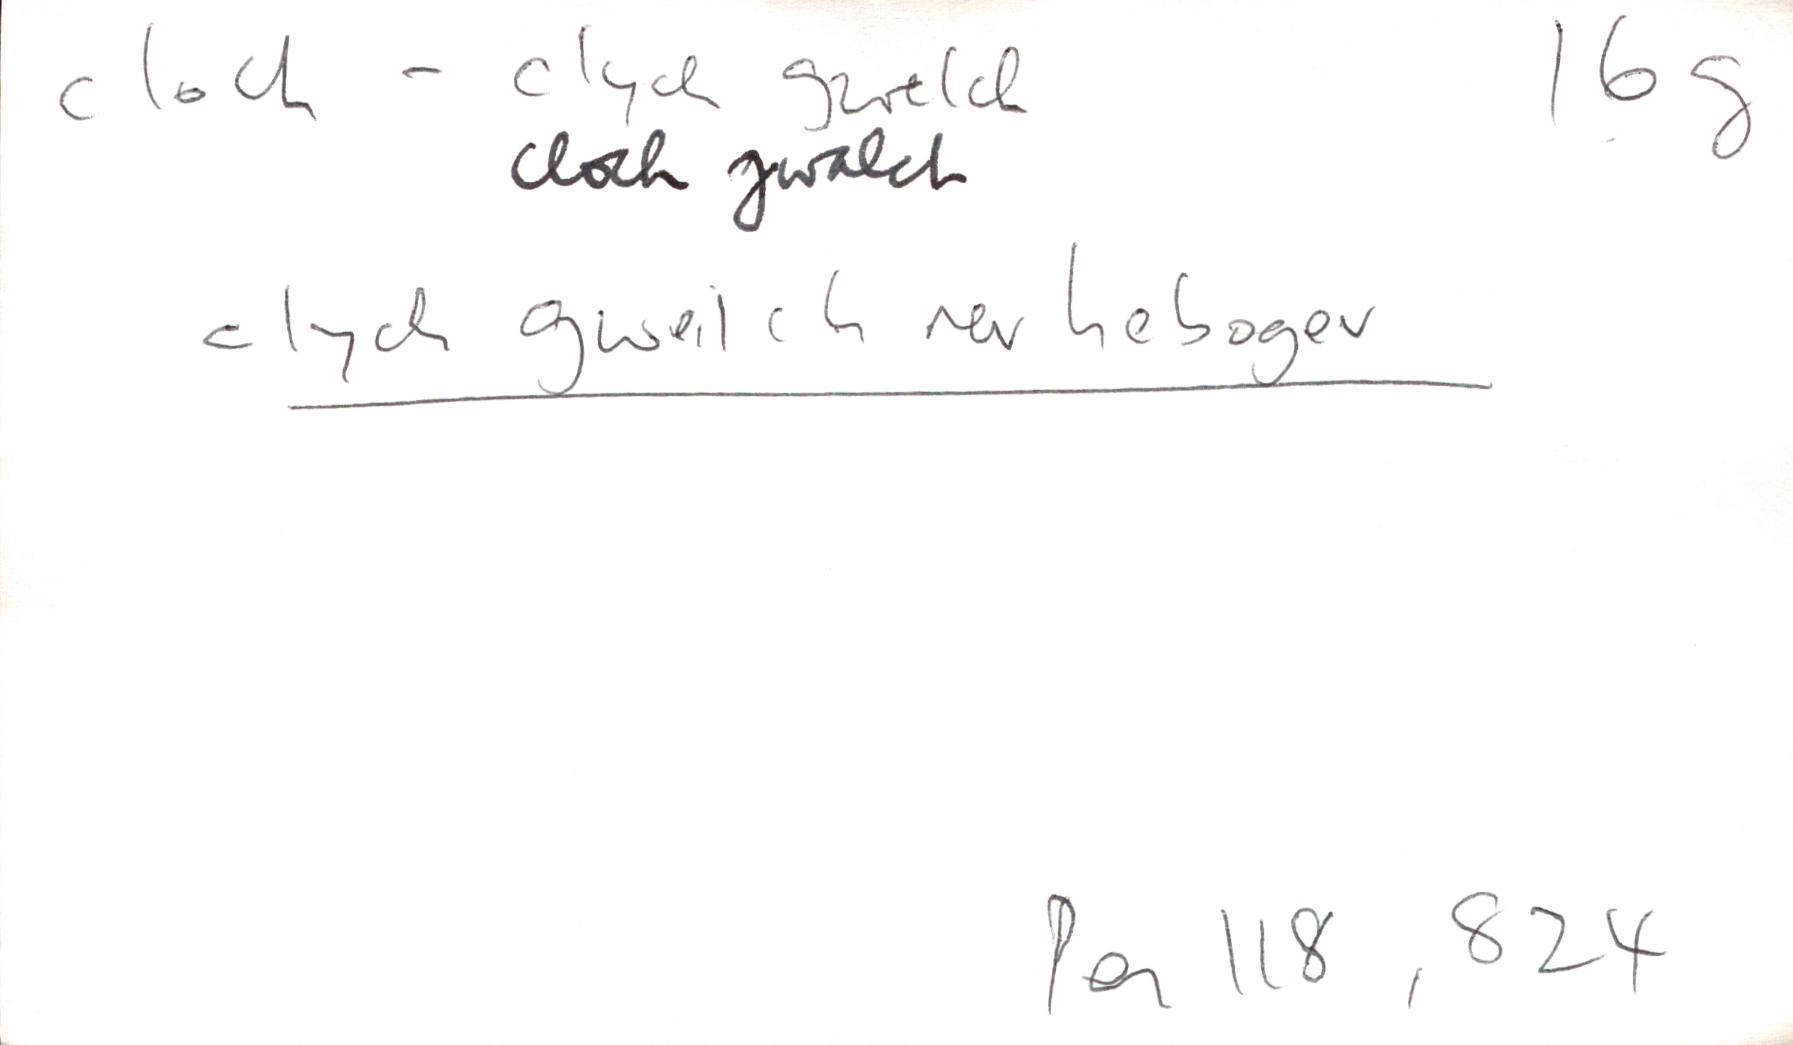 cloch - clych gwelch 16g
cloch gwalch
clych gweilch nev hebogev
Pen 118, 824